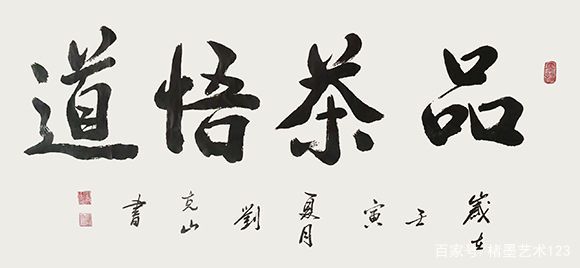 品茶悟道
歲在壬寅夏月劉克山書
百家号/楮墨艺术123